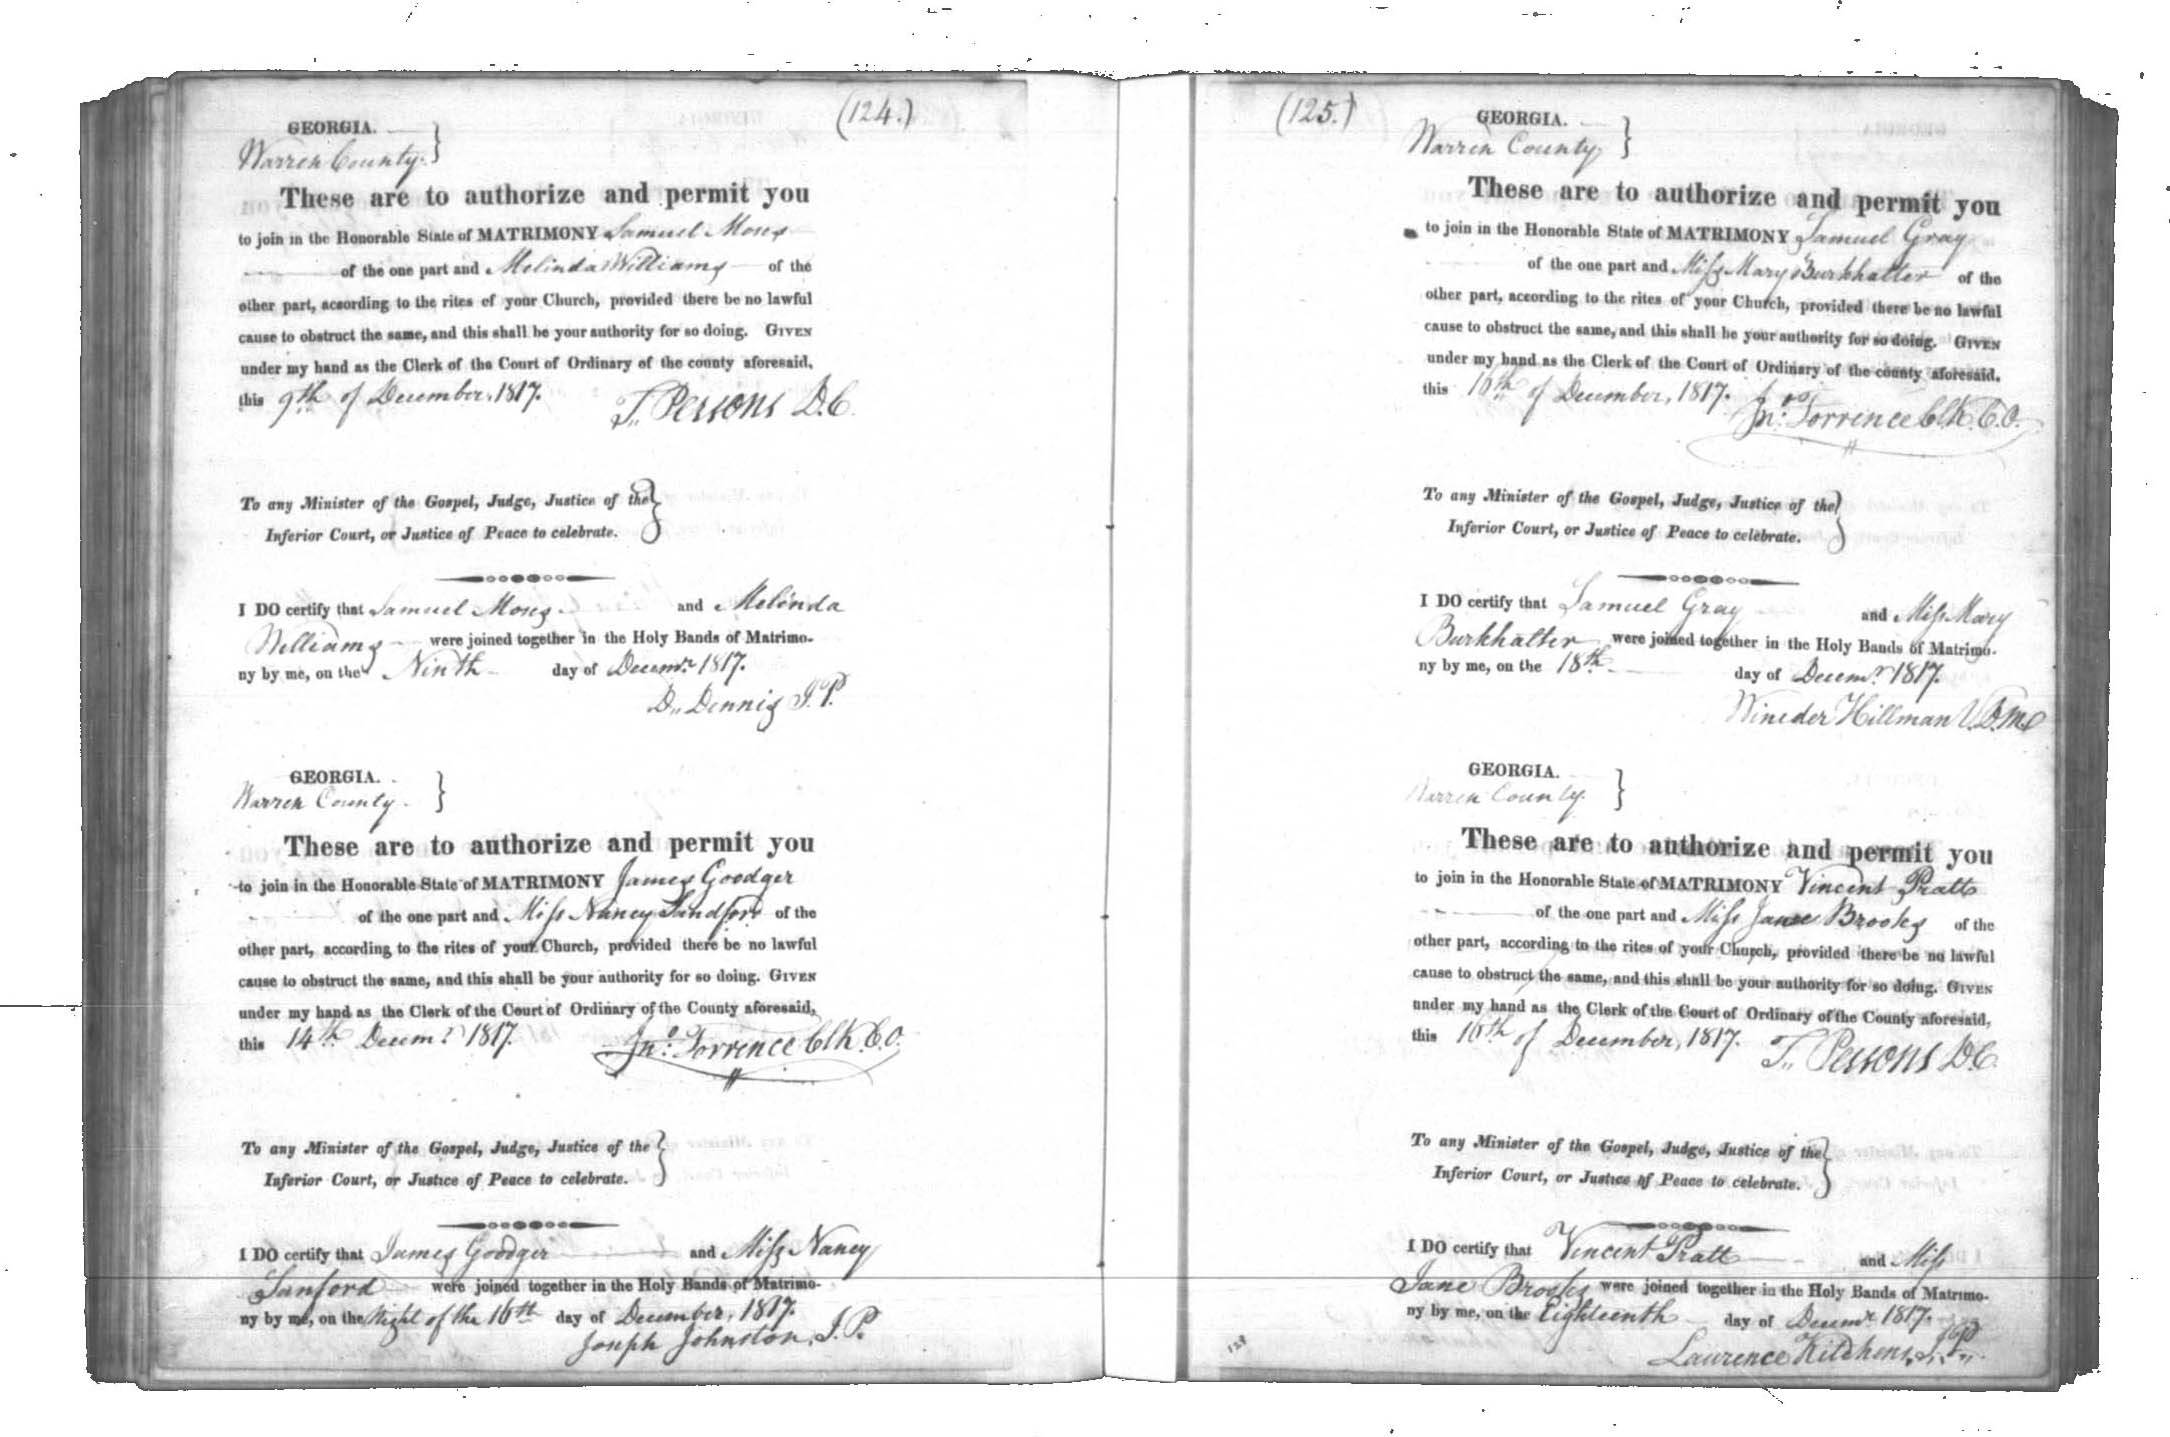 (124.)
GEORGIA.
Warren County. }
These are to authorize and permit you
to join in the Honorable State of MATRIMONY Samuel Moses
of the one part and Melinda Williams of the
other part, according to the rites of your Church, provided there be no lawful
cause to obstruct the same, and this shall be your authority for so doing. GIVEN
under my hand as the Clerk of the Court of Ordinary of the county aforesaid,
this 9th of December, 1817. T,, Persons D.C.
To any Minister of the Gospel, Judge, Justice of the }
Inferior Court, or Justice of Peace to celebrate.
I DO certify that Samuel Moses and Melinda
Williams were joined together in the Holy Bands of Matrimo-
ny by me, on the Ninth day of Decemr. 1817.
D,, Dennis J.P.
GEORGIA.
Warren County. }
These are to authorize and permit you
to join in the Honorable State of MATRIMONY James Goodger
of the one part and Miss Nancy Sandford of the
other part, according to the rites of your Church, provided there be no lawful
cause to obstruct the same, and this shall be your authority for so doing. GIVEN
under my hand as the Clerk of the Court of Ordinary of the County aforesaid,
this 14th Decemr. 1817. Jno: Torrence Clk. C.O.
To any Minister of the Gospel, Judge, Justice of the }
Inferior Court, or Justice of Peace to celebrate.
I DO certify that James Goodger and Miss Nancy
Sanford were joined together in the Holy Bands of Matrimo-
ny by me, on the Night of the 16th day of December, 1817.
Joseph Johnston, J.P.
(125.)
GEORGIA.
Warren County }
These are to authorize and permit you
to join in the Honorable State of MATRIMONY Samuel Gray
of the one part and Miss Mary Burkhalter of the
other part, according to the rites of your Church, provided there be no lawful
cause to obstruct the same, and this shall be your authority for so doing. GIVEN
under my hand as the Clerk of the Court of Ordinary of the county aforesaid,
this 16th of December, 1817. Jno: Torrence Clk. C.O.
To any Minister of the Gospel, Judge, Justice of the }
Inferior Court, or Justice of Peace to celebrate.
I DO certify that Samuel Gray and Miss Mary
Burkhalter were joined together in the Holy Bands of Matrimo-
ny by me, on the 18th day of Decemr. 1817.
Wineder Hillman V.D.M.
GEORGIA.
Warren County. }
These are to authorize and permit you
to join in the Honorable State of MATRIMONY Vincent Pratt
of the one part and Miss Jane Brooks of the
other part, according to the rites of your Church, provided there be no lawful
cause to obstruct the same, and this shall be your authority for so doing. GIVEN
under my hand as the Clerk of the Court of Ordinary of the County aforesaid,
this 16th of December, 1817. T,, Persons D.C.
To any Minister of the Gospel, Judge, Justice of the }
Inferior Court, or Justice of Peace to celebrate.
I DO certify that Vincent Pratt and Miss
Jane Brooks were joined together in the Holy Bands of Matrimo-
ny by me, on the Eighteenth day of Decemr. 1817.
Laurence Kitchens, J.P.